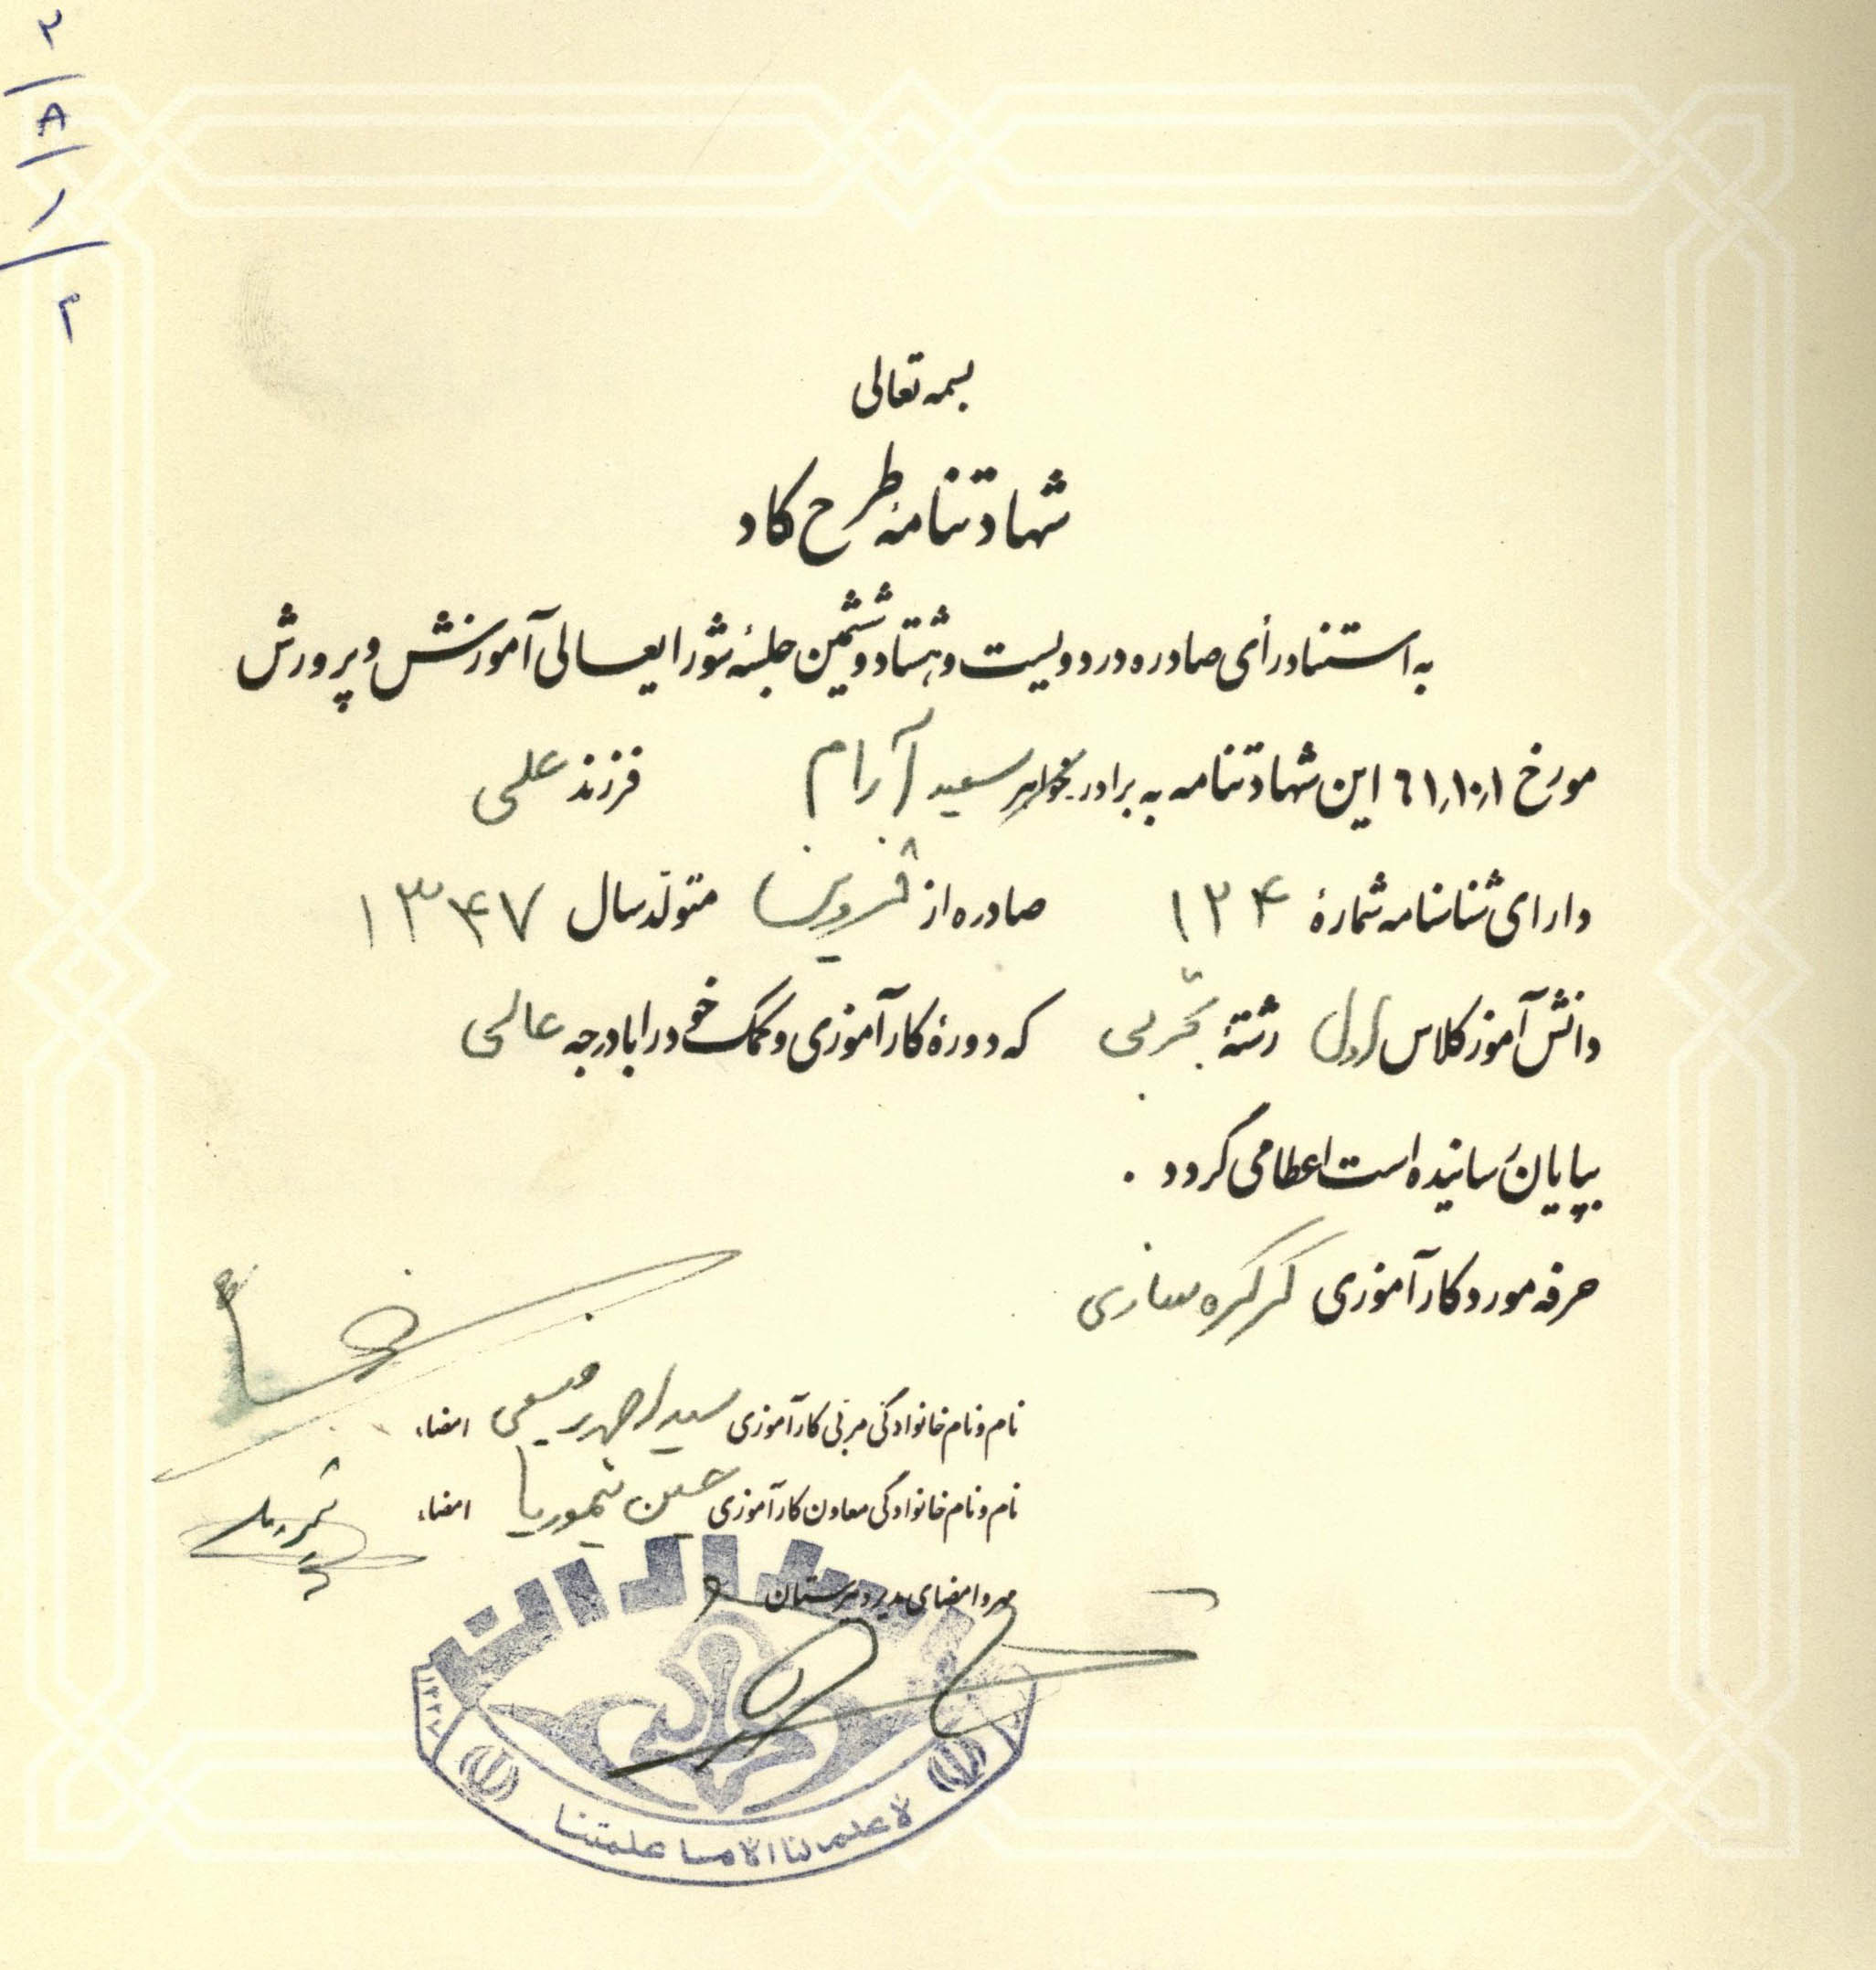 ۲/۸/۱/۲
بسمه تعالی
شهادتنامهٔ طرح کاد
به استناد رأی صادره در دویست و هشتاد و ششمین جلسهٔ شورایعالی آموزش و پرورش
مورخ ٦١,١٠,١ این شهادتنامه به برادر خواهر سعید آرام فرزند علی
دارای شناسنامه شمارهٔ ۱۲۴ صادره از قزوین متولد سال ۱۳۴۷
دانش آموز کلاس اول رشتهٔ تجربی که دورهٔ کارآموزی و کمک خود را با درجه عالی
بپایان رسانیده است اعطا می گردد .
حرفه مورد کارآموزی کرکره سازی
نام و نام خانوادگی مربی کارآموزی سید امضاء:
نام و نام خانوادگی معاون کارآموزی حسین تیموریا امضاء:
مهر و امضای مدیر دبیرستان
لا علم لنا الا ما علمتنا